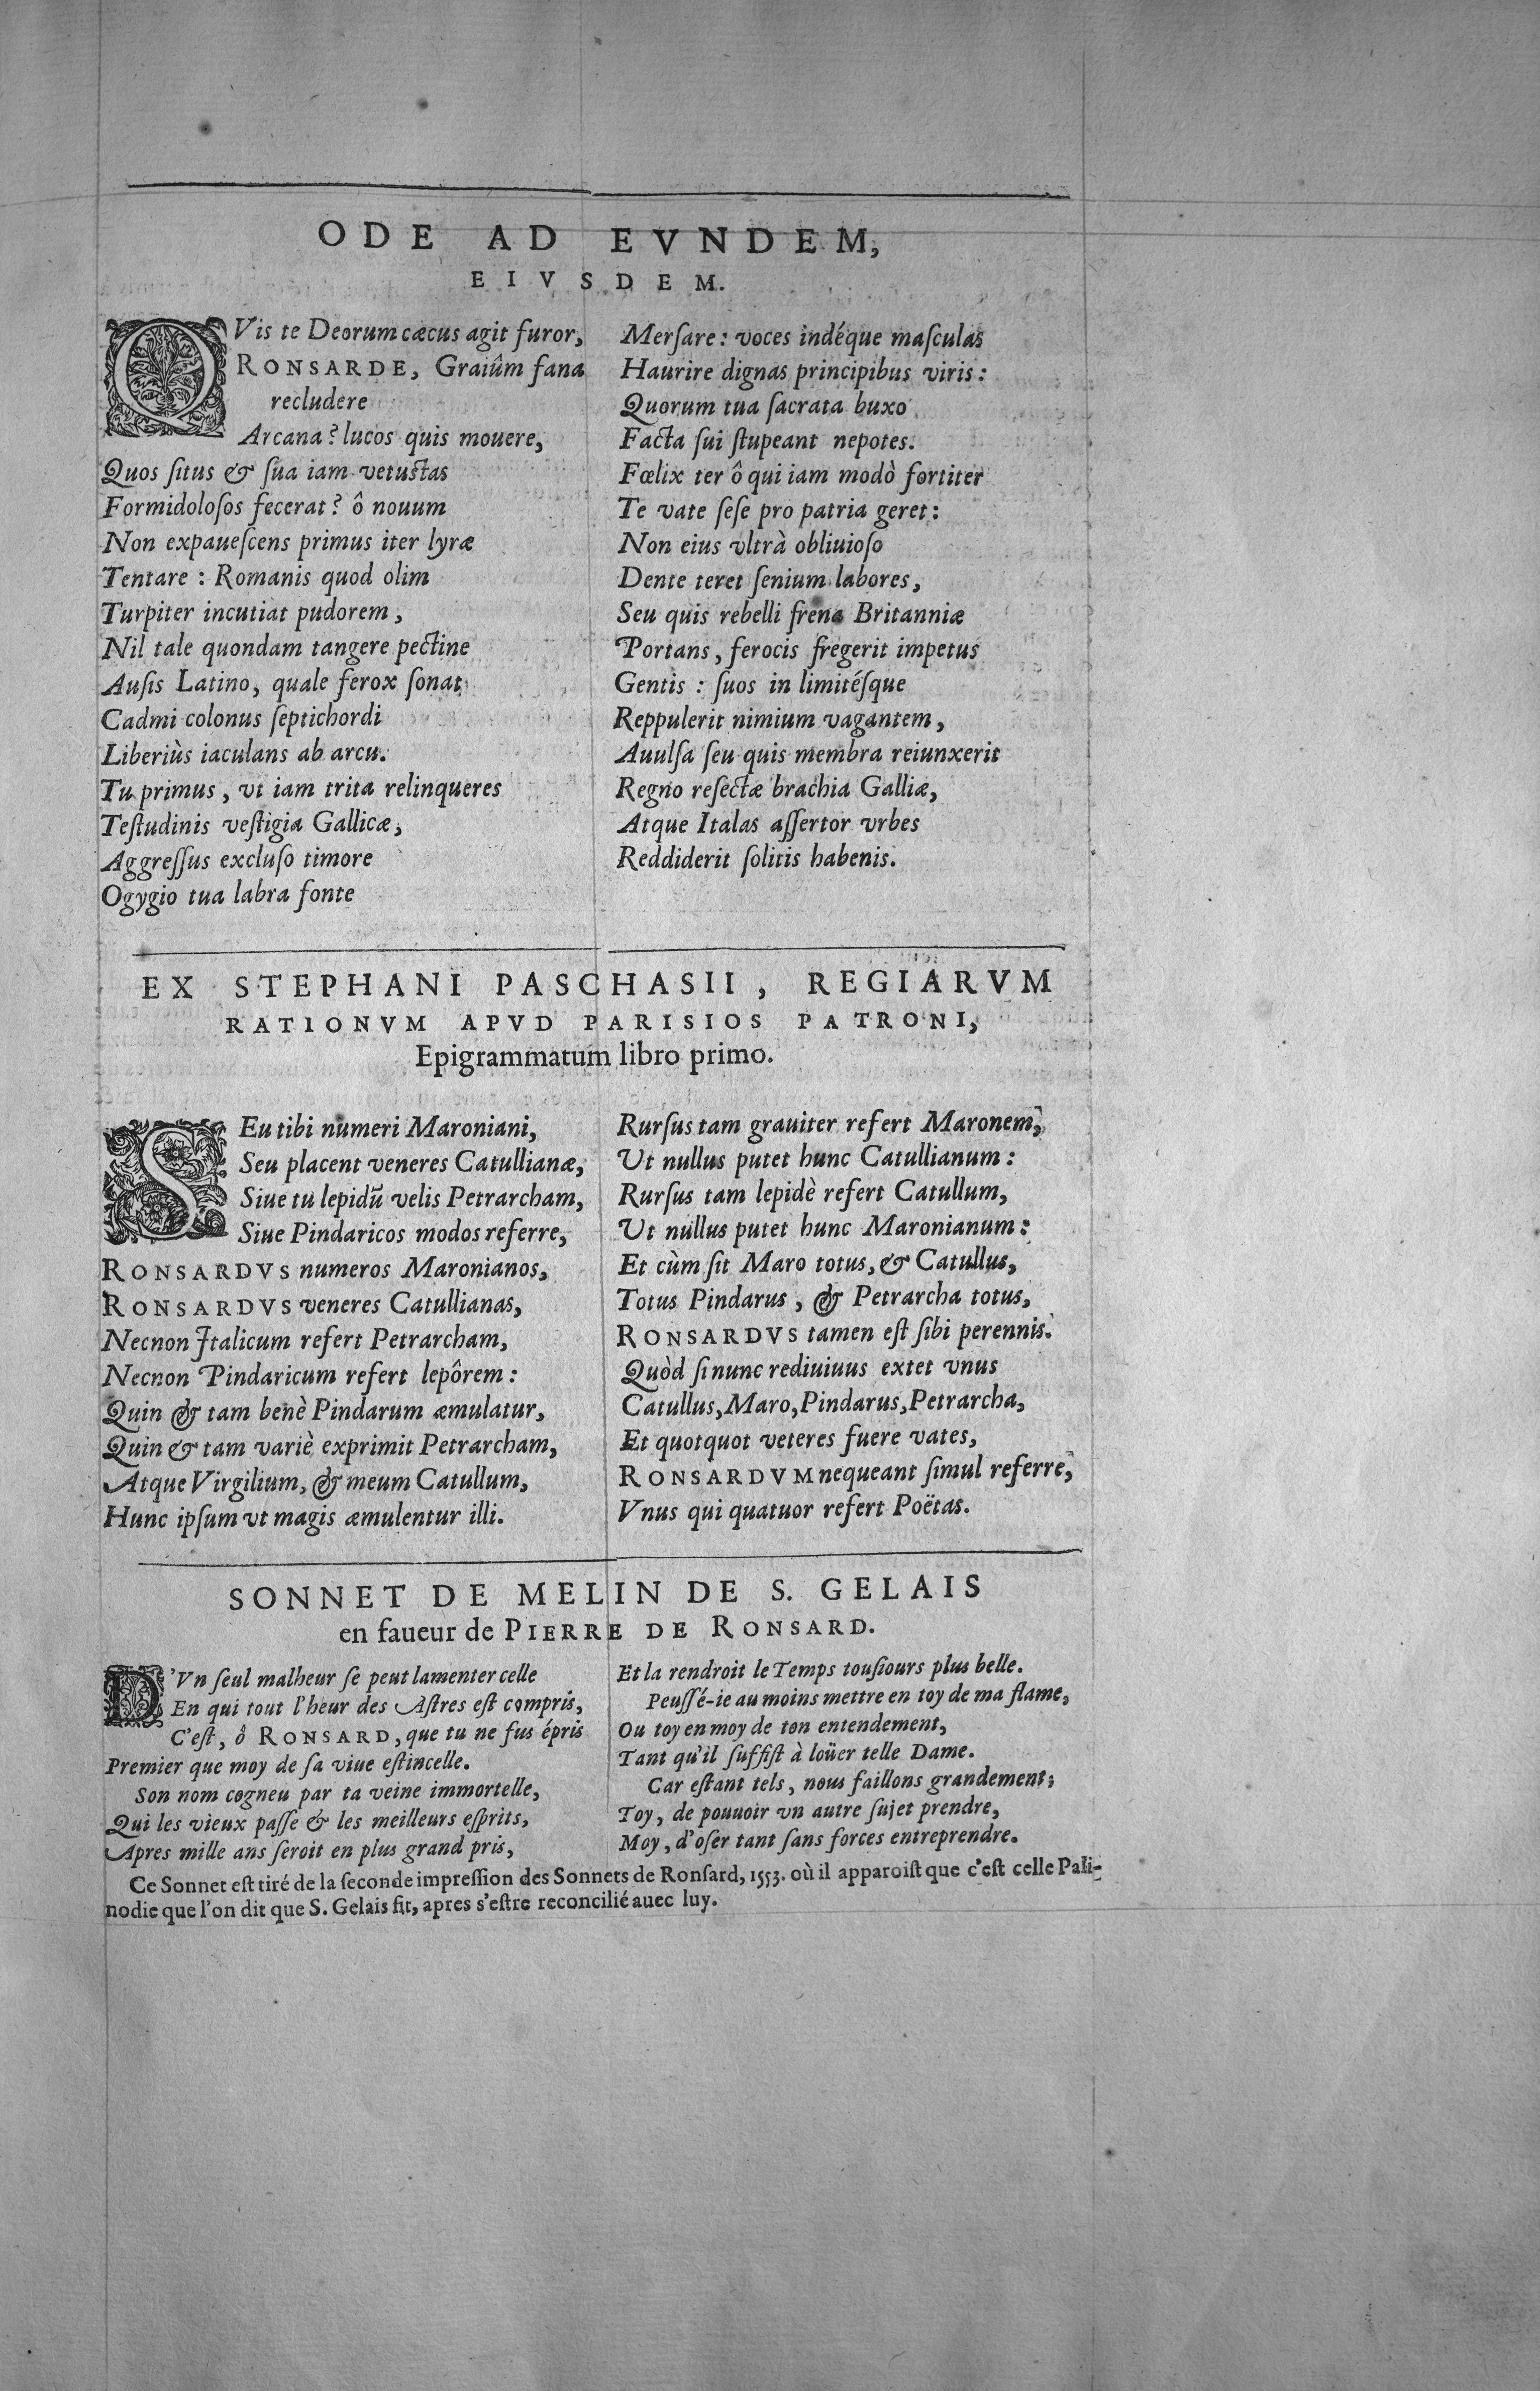 ODE AD EVNDEM,
EIVSDEM.
QVis te Deorum cæcus agit furor,
RONSARDE, Graiûm fana
recludere
Arcana? lucos quis mouere,
Quos ſitus & ſua iam vetuſtas
Formidoloſos fecerat? ô nouum
Non expaueſcens primus iter lyræ
Tentare : Romanis quod olim
Turpiter incutiat pudorem,
Nil tale quondam tangere pectine
Auſis Latino, quale ferox ſonat
Cadmi colonus ſeptichordi
Liberiùs iaculans ab arcu.
Tu primus, vt iam trita relinqueres
Teſtudinis veſtigia Gallicæ,
Aggreſſus excluſo timore
Ogygio tua labra fonte
Merſare : voces indéque maſculas
Haurire dignas principibus viris :
Quorum tua ſacrata buxo
Facta ſui ſtupeant nepotes.
Fœlix ter ô qui iam modò fortiter
Te vate ſeſe pro patria geret :
Non eius vltrà obliuioſo
Dente teret ſenium labores,
Seu quis rebelli frena Britanniæ
Portans, ferocis fregerit impetus
Gentis : ſuos in limitéſque
Reppulerit nimium vagantem,
Auulſa ſeu quis membra reiunxerit
Regno reſectæ brachia Galliæ,
Atque Italas aſſertor vrbes
Reddiderit ſolitis habenis.
EX STEPHANI PASCHASII, REGIARVM
RATIONVM APVD PARISIOS PATRONI,
Epigrammatum libro primo.
SEu tibi numeri Maroniani,
Seu placent veneres Catullianæ,
Siue tu lepidũ velis Petrarcham,
Siue Pindaricos modos referre,
RONSARDVS numeros Maronianos,
RONSARDVS veneres Catullianas,
Necnon Italicum refert Petrarcham,
Necnon Pindaricum refert lepôrem :
Quin & tam benè Pindarum æmulatur,
Quin & tam variè exprimit Petrarcham,
Atque Virgilium, & meum Catullum,
Hunc ipſum vt magis æmulentur illi.
Rurſus tam grauiter refert Maronem,
Ut nullus putet hunc Catullianum :
Rurſus tam lepidè refert Catullum,
Ut nullus putet hunc Maronianum :
Et cùm ſit Maro totus, & Catullus,
Totus Pindarus, & Petrarcha totus,
RONSARDVS tamen eſt ſibi perennis.
Quòd ſi nunc rediuiuus extet vnus
Catullus, Maro, Pindarus, Petrarcha,
Et quotquot veteres fuere vates,
RONSARDVM nequeant ſimul referre,
Vnus qui quatuor refert Poëtas.
SONNET DE MELIN DE S. GELAIS
en faueur de PIERRE DE RONSARD.
D'Vn ſeul malheur ſe peut lamenter celle
En qui tout l'heur des Aſtres eſt compris,
C'eſt, ô RONSARD, que tu ne fus épris
Premier que moy de ſa viue eſtincelle.
Son nom cogneu par ta veine immortelle,
Qui les vieux paſſe & les meilleurs eſprits,
Apres mille ans ſeroit en plus grand pris,
Et la rendroit le Temps touſiours plus belle.
Peuſſé-ie au moins mettre en toy de ma flame,
Ou toy en moy de ton entendement,
Tant qu'il ſuffiſt à loüer telle Dame.
Car eſtant tels, nous faillons grandement;
Toy, de pouuoir vn autre ſujet prendre,
Moy, d'oſer tant ſans forces entreprendre.
Ce Sonnet eſt tiré de la ſeconde impreſſion des Sonnets de Ronſard, 1553. où il apparoiſt que c'eſt celle Pali-
nodie que l'on dit que S. Gelais fit, apres s'eſtre reconcilié auec luy.